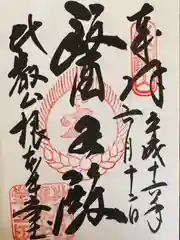 奉拝
平成十六年
月十二日
醫王殿
比叡山根本中堂